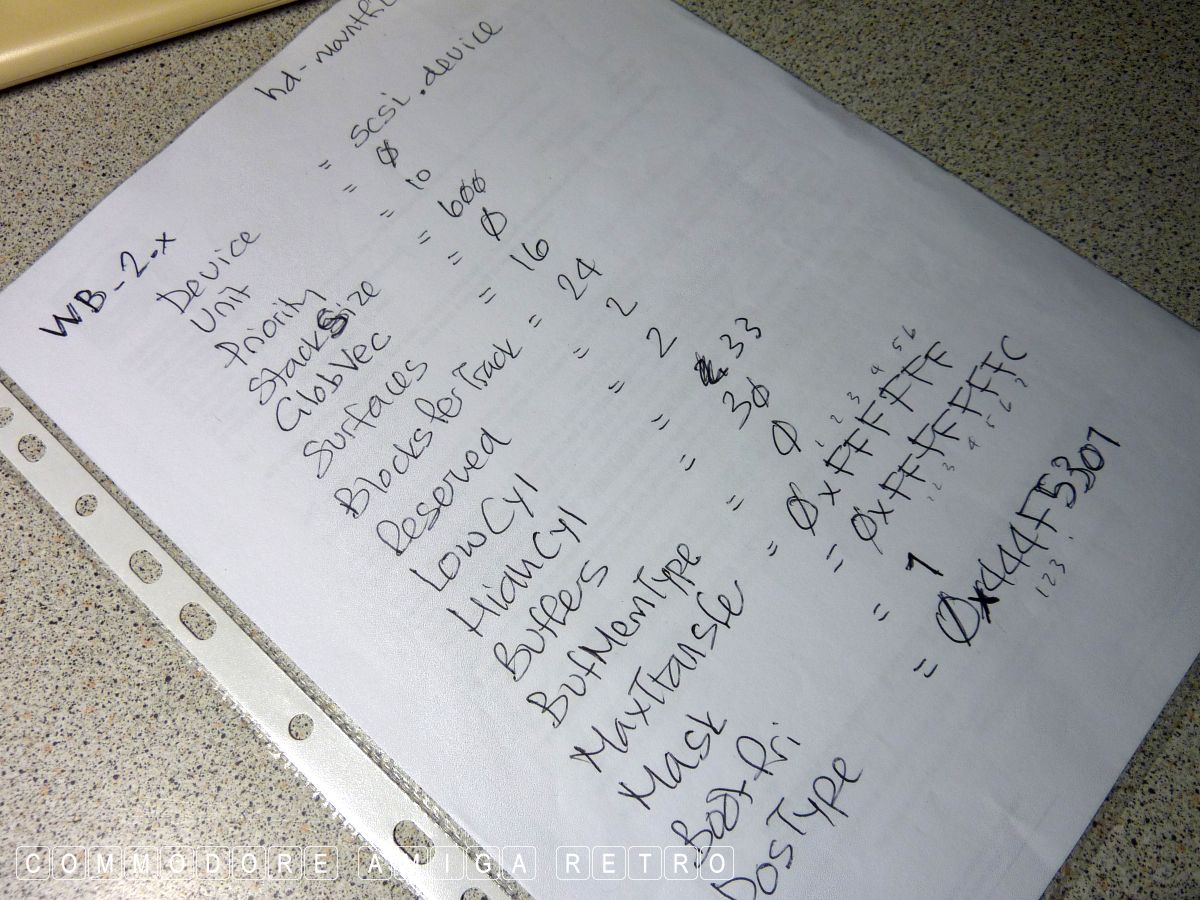 hd-mount
WB_2.x
Device = scsi.device
Unit = 0
Priority = 10
StackSize = 600
GlobVec = 0
Surfaces = 16
BlocksPerTrack = 24
Reserved = 2
LowCyl = 2
HighCyl = 33
Buffers = 30
BufMemType = 0
1 2 3 4 5 6
MaxTransfe = 0xFFFFFF
Mask = 0xFFFFFFFC
BootPri = 1
DosType = 0x444F5301
1 2 3
COMMODORE AMIGA RETRO